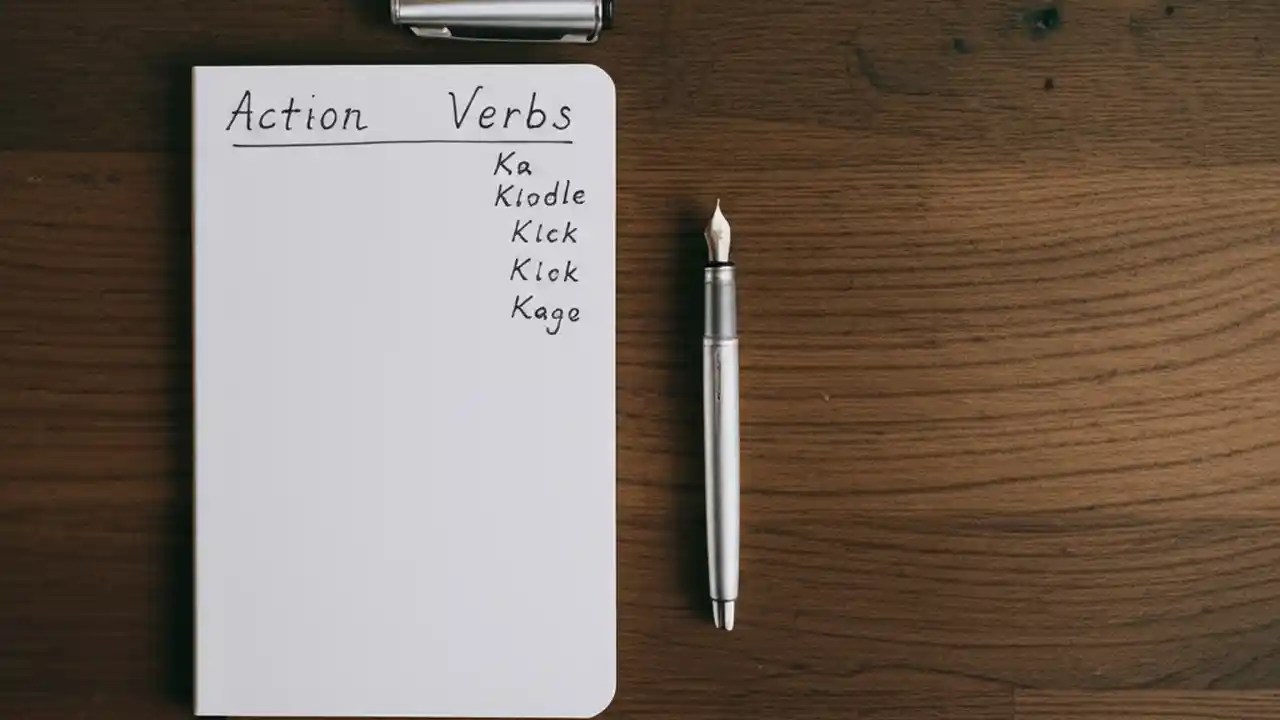 Action Verbs
Ka
Klodle
Kick
Kick
Kage